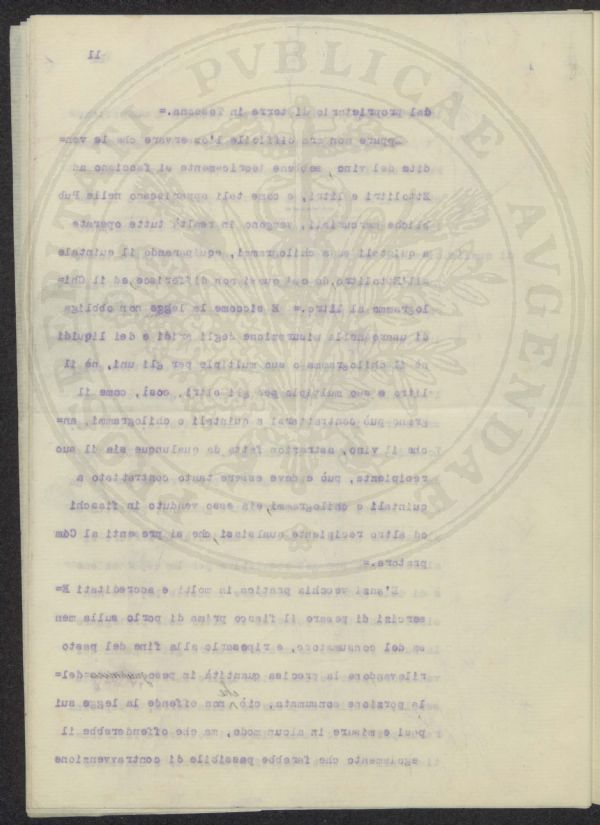 11
PROSPERITATI PVBLICAE AVGENDAE
dal proprietario di terre in Toscana.=
Eppure non era difficile l'osservare che le ven=
dite del vino, sebbene teoricamente si facciano ad
Ettolitri e litri, e come tali appariscano nelle Pub
bliche mercuriali, vengono in realtà tutte operate
a quintali e a chilogrammi, equiparando il quintale
all'Ettolitro, da cui quasi non differisce, ed il Chi=
logrammo al litro.= E siccome la legge non obbliga
di usare nella misurazione degli aridi e dei liquidi
nè il chilogrammo o suo multiplo per gli uni, nè il
litro e suo multiplo per gli altri, così, come il
grano può contrattarsi a quintali o chilogrammi, an=
che il vino, astrazion fatta da qualunque sia il suo
recipiente, può e deve essere tanto contrattato a
quintali o chilogrammi, sia esso venduto in fiaschi
od altro recipiente qualsiasi, che si presenti al Com
pratore.=
E' anzi vecchia pratica in molti e accreditati E=
sercizi di pesare il fiasco prima di porlo sulla men
sa del consumatore, e ripesarlo alla fine del pasto
rilevandone la precisa quantità in peso del=
la porzione consumata, ciò che non offende la legge sui
pesi e misure in alcun modo, ma che offenderebbe il
segnamento che farebbe passibile di contravvenzione